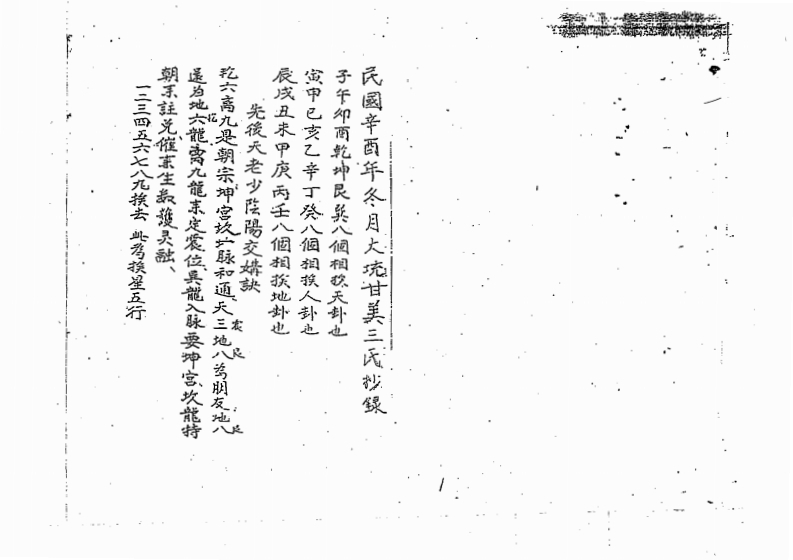 民國辛酉年冬月大堍甘美三氏抄錄
子午卯酉乾坤艮巽八個相挨天卦也
寅申巳亥乙辛丁癸八個相挨人卦也
辰戌丑未甲庚丙壬八個相挨地卦也
先後天老少陰陽交媾訣
乾六离九是朝宗坤宮坎上脉和通、天三地八為朋友地八
震艮
艮
還為地六龍离九龍来定震位、巽龍入脉要坤宮、坎龍特
朝来註兌、催来生數護灵融、
一二三四五六七八九挨去 此為挨星五行
1